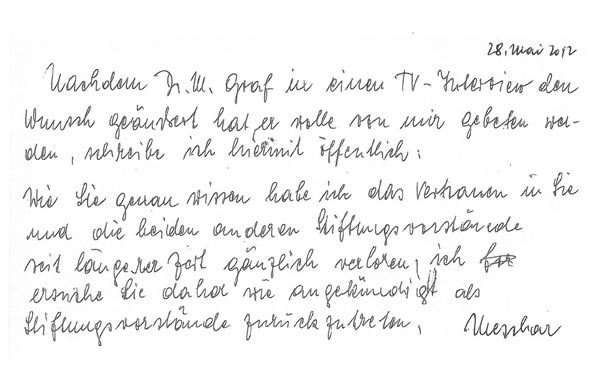 28. Mai 2012
Nachdem Dr. M. Graf in einem TV-Interview den
Wunsch geäußert hat er wolle von mir gebeten wer-
den, schreibe ich hiermit öffentlich:
Wie Sie genau wissen habe ich das Vertrauen in Sie
und die beiden anderen Stiftungsvorstände
seit längerer Zeit gänzlich verloren, ich
ersuche Sie daher wie angekündigt als
Stiftungsvorstände zurückzutreten.